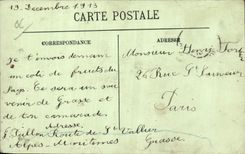 13 Decembre 1913
CARTE POSTALE
CORRESPONDANCE
ADRESSE
Je t'envois demain
un colis de fruits du
Pays. Ce sera un sou
venir de Grasse et de
ton camarade.
Adresse
Route de St Vallier
Alpes-Maritimes
Grasse
Monsieur Henry
26 Rue St Sauveur
Paris